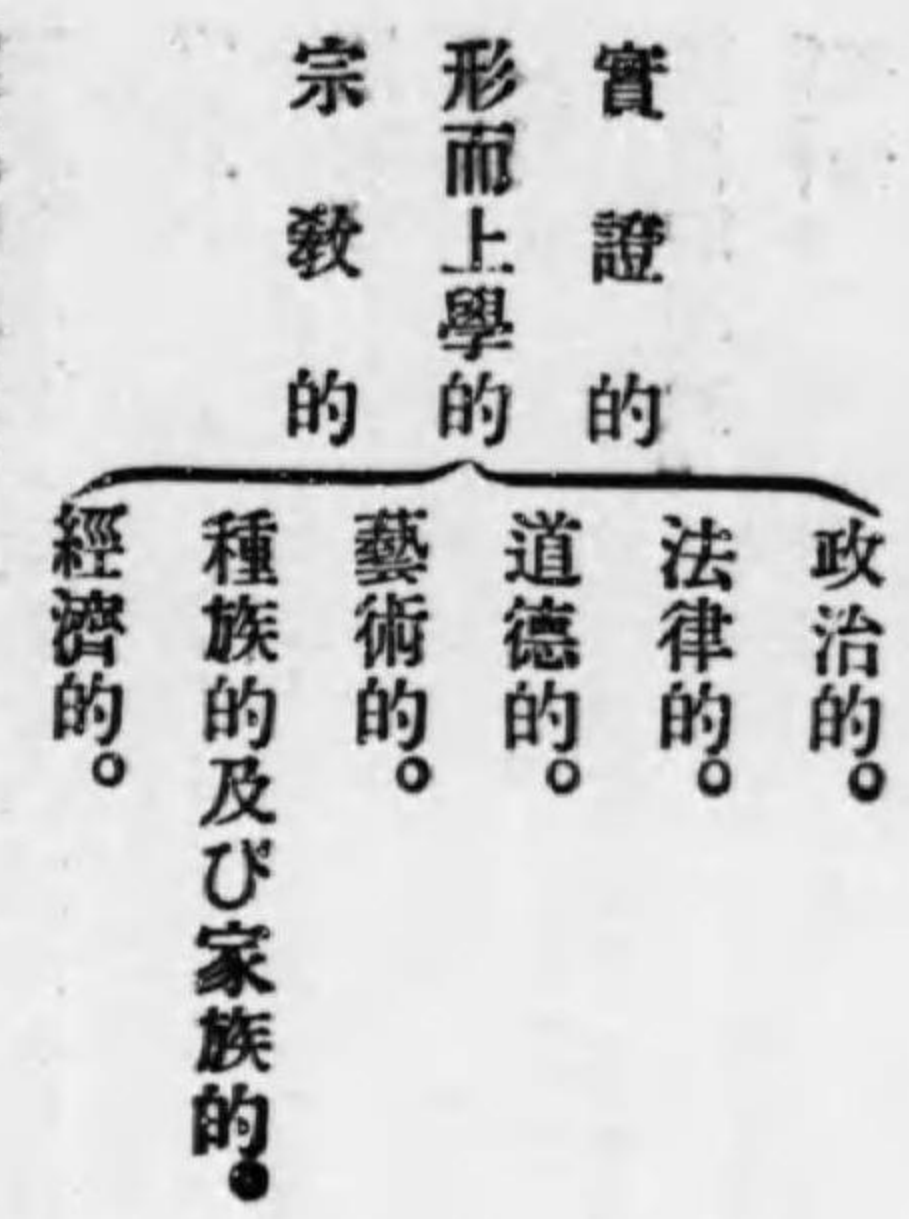 實證的
形而上學的
宗敎的
政治的。
法律的。
道德的。
藝術的。
種族的及び家族的。
經濟的。